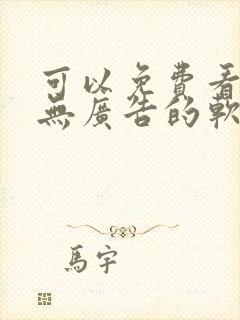 可以免費看
無廣告的軟
馬宇